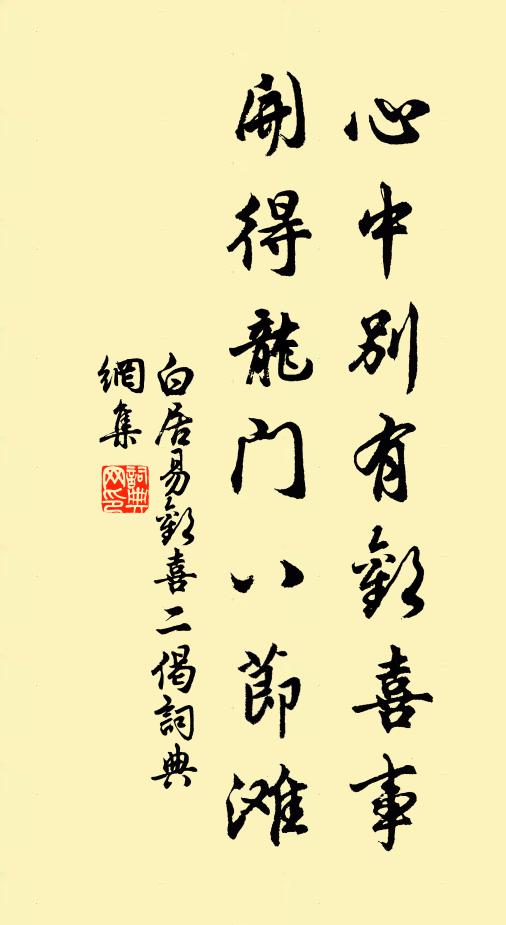 心中別有歡喜事
開得龍门八節滩
白居易歡喜二偈詞典
網集
詞典網印